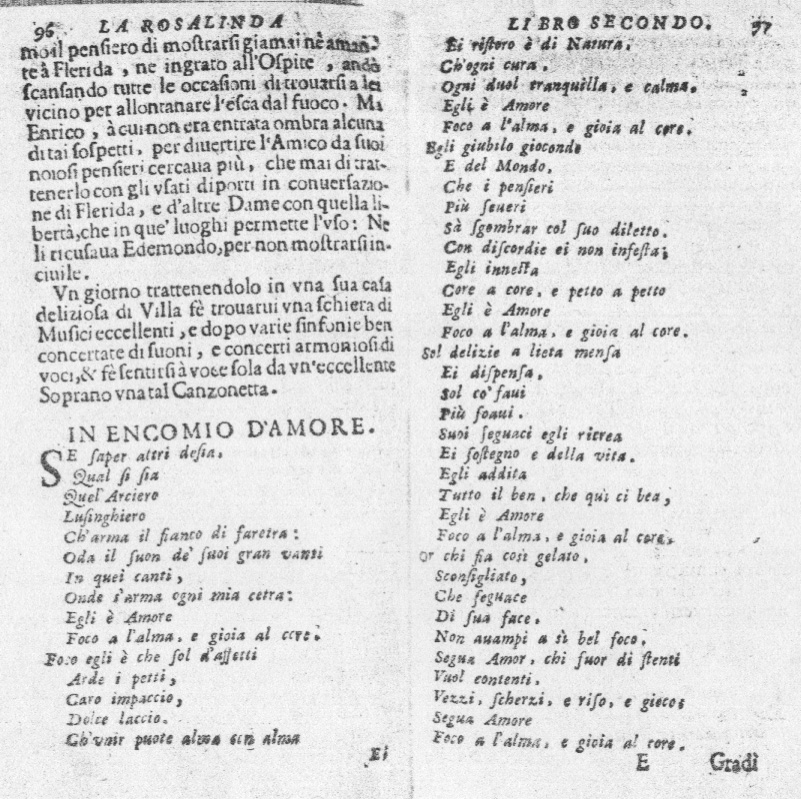 96. LA ROSALINDA
mo il pensiero di mostrarsi giamai nè aman-
te à Flerida, ne ingrato all'Ospite, andò
scansando tutte le occasioni di trouarsi a lei
vicino per allontanare l'esca dal fuoco. Ma
Enrico, à cui non era entrata ombra alcuna
di tai sospetti, per diuertire l'Amico da suoi
noiosi pensieri cercaua più, che mai di trat-
tenerlo con gli vsati diporti in conuersazio-
ne di Flerida, e d'altre Dame con quella li-
bertà, che in que' luoghi permette l'vso: Ne
li ricusaua Edemondo, per non mostrarsi in-
ciuile.
Vn giorno trattenendolo in vna sua casa
deliziosa di Villa fè trouarui vna schiera di
Musici eccellenti, e dopo varie sinfonie ben
concertate di suoni, e concerti armoniosi di
voci, & fè sentirsi à voce sola da vn'eccellente
Soprano vna tal Canzonetta.
IN ENCOMIO D'AMORE.
SE saper altri desia,
Qual si sia
Quel'Arciero
Lusinghiero
Ch'arma il fianco di faretra:
Oda il suon de' suoi gran vanti
In quei canti,
Onde s'arma ogni mia cetra:
Egli è Amore
Foco a l'alma, e gioia al core.
Foco egli è che sol d'affetti
Arde i petti,
Caro impaccio,
Dolce laccio.
Ch'vnir puote alma con alma
Ei
LIBRO SECONDO. 97
Ei ristoro è di Natura,
Ch'ogni cura,
Ogni duol tranquilla, e calma.
Egli è Amore
Foco a l'alma, e gioia al core.
Egli giubilo giocondo
E del Mondo,
Che i pensieri
Più seueri
Sà sgombrar col suo diletto.
Con discordie ei non infesta;
Egli innesta
Core a core, e petto a petto
Egli è Amore
Foco a l'alma, e gioia al core.
Sol delizie a lieta mensa
Ei dispensa,
Sol co' faui
Più soaui.
Suoi seguaci egli ricrea
Ei sostegno e della vita.
Egli addita
Tutto il ben, che quì ci bea,
Egli è Amore
Foco a l'alma, e gioia al core.
Or chi fia così gelato,
Sconsigliato,
Che seguace
Di sua face,
Non auampi a sì bel foco,
Segua Amor, chi fuor di stenti
Vuol contenti,
Vezzi, scherzi, e riso, e gioco;
Segua Amore
Foco a l'alma, e gioia al core.
E Gradì